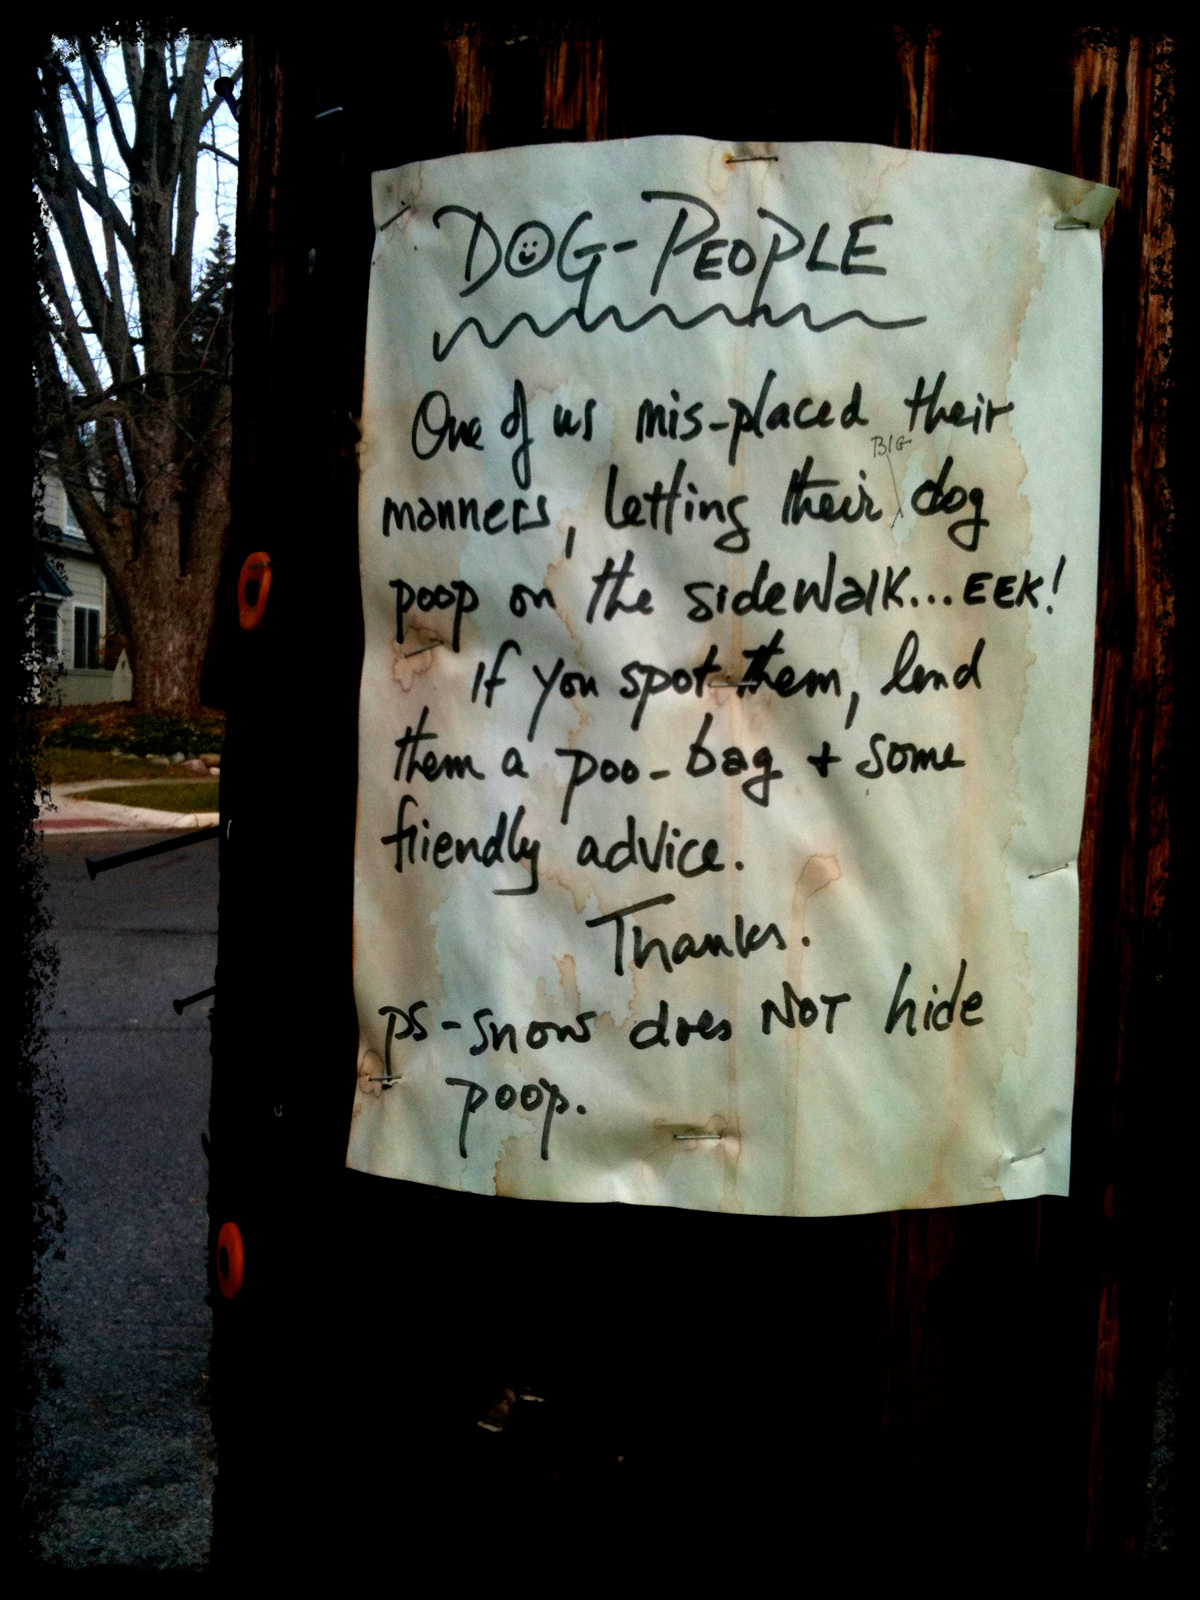 DOG-PEOPLE
One of us mis-placed their
manners, letting their BIG dog
poop on the sidewalk... EEK!
If you spot them, lend
them a poo-bag + some
friendly advice.
Thanks.
ps-snow does NOT hide
poop.